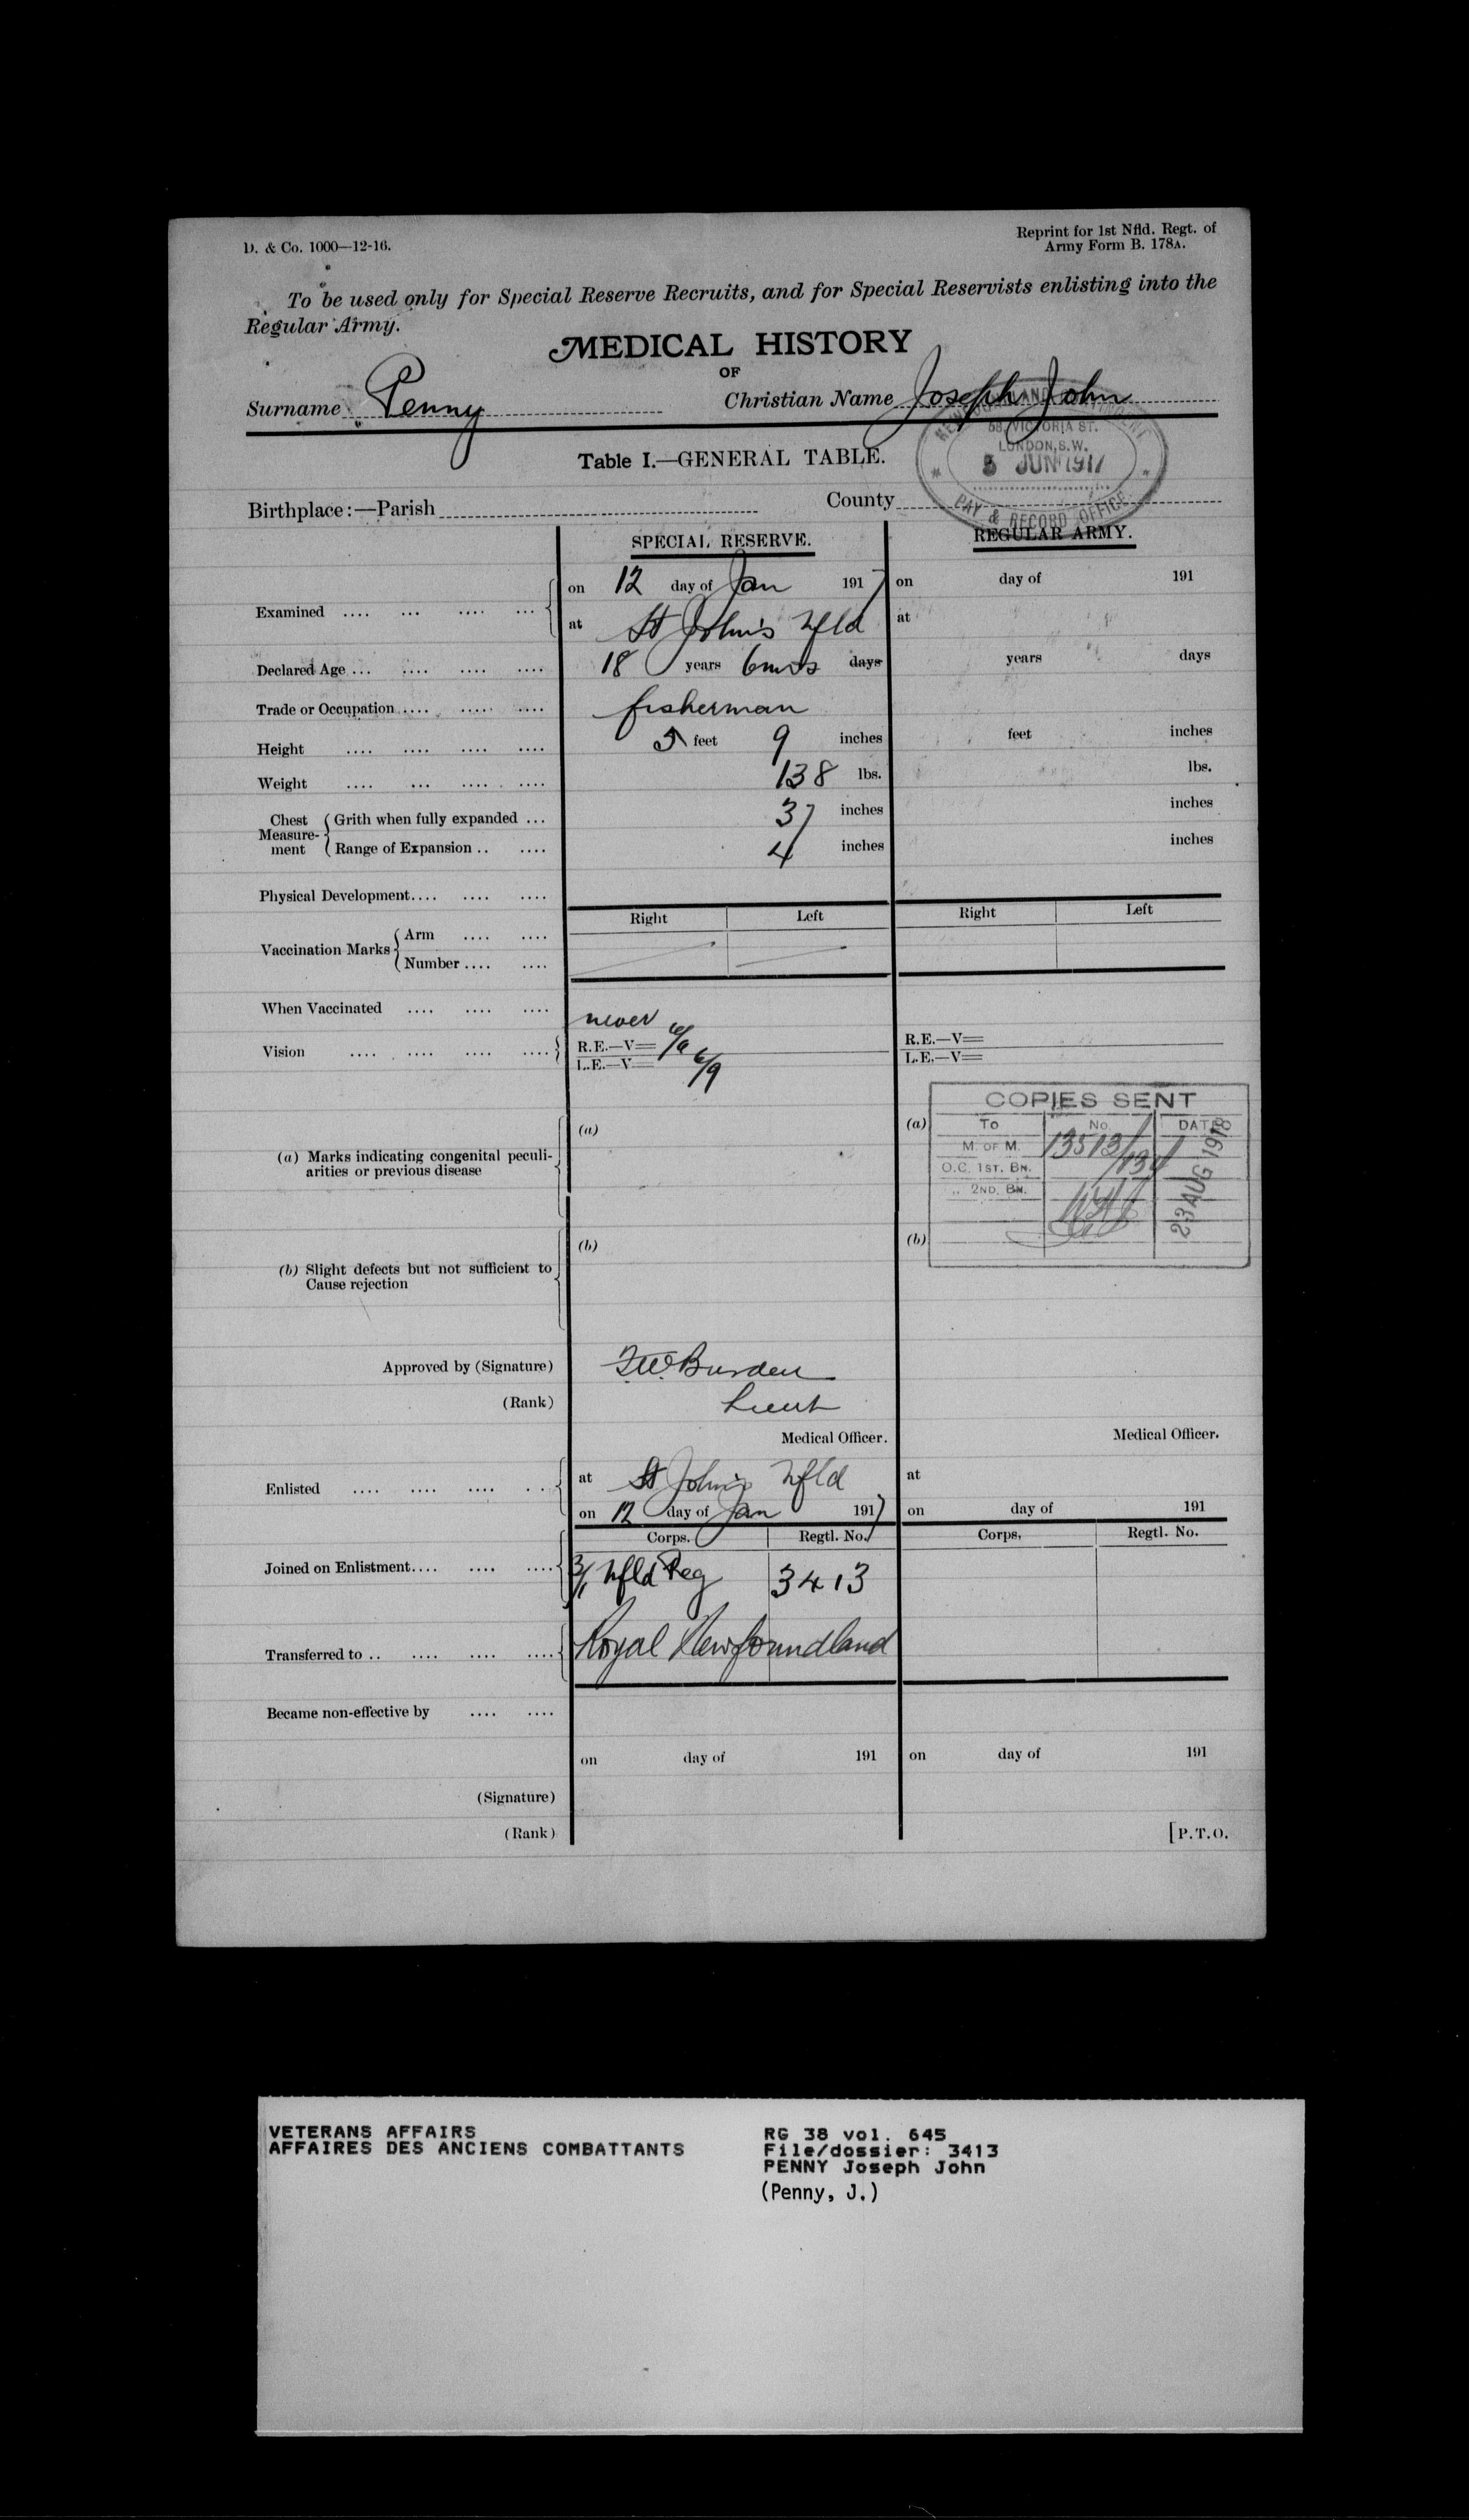 D. & Co. 1000—12-16.
Reprint for 1st Nfld. Regt. of
Army Form B. 178A.
To be used only for Special Reserve Recruits, and for Special Reservists enlisting into the
Regular Army.
MEDICAL HISTORY
OF
Surname Penny Christian Name Joseph John
NEWFOUNDLAND CONTINGENT
58, VICTORIA ST.
LONDON, S.W.
5 JUN 1917
PAY & RECORD OFFICE
Table I.—GENERAL TABLE.
Birthplace:—Parish County
SPECIAL RESERVE. REGULAR ARMY.
Examined .... ... .... ... on 12 day of Jan 1917 on day of 191
at St John's Nfld at
Declared Age ... .... .... .... 18 years 6 mos days years days
Trade or Occupation .... .... .... fisherman
Height .... .... .... .... 5 feet 9 inches feet inches
Weight .... ... .... .... 138 lbs. lbs.
Chest Measure-ment Grith when fully expanded ... 37 inches inches
Range of Expansion .. .... 4 inches inches
Physical Development.... .... ....
Right Left Right Left
Vaccination Marks Arm .... ....
Number .... ....
When Vaccinated .... .... .... never
Vision .... .... .... .... R.E.—V= 6/6 R.E.—V=
L.E.—V= 6/9 L.E.—V=
COPIES SENT
To No. DATED
M. OF M. 13513/134
O.C. 1ST. BN.
,, 2ND. BN.
23 AUG 1918
(a) Marks indicating congenital peculi-
arities or previous disease
(a) (a)
(b) Slight defects but not sufficient to
Cause rejection
(b) (b)
Approved by (Signature) F.W. Burden
(Rank) Lieut
Medical Officer. Medical Officer.
Enlisted .... .... .... .. at St John's Nfld at
on 12 day of Jan 1917 on day of 191
Corps. Regtl. No. Corps. Regtl. No.
Joined on Enlistment.... .... .... 3/1 Nfld Reg 3413
Transferred to .. .... .... .... Royal Newfoundland
Became non-effective by .... ....
on day of 191 on day of 191
(Signature)
(Rank)
[P.T.O.
VETERANS AFFAIRS
AFFAIRES DES ANCIENS COMBATTANTS
RG 38 vol. 645
File/dossier: 3413
PENNY Joseph John
(Penny, J.)